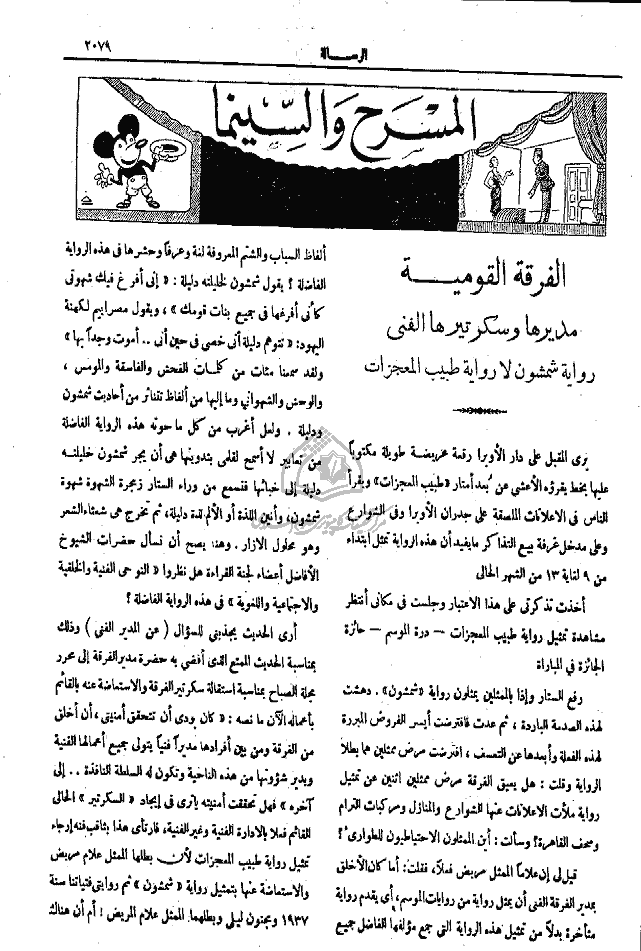 ٢٠٧٩
الرسالة
المسرح والسينما
الفرقة القومية
مديرها وسكرتيرها الفنى
رواية شمشون لا رواية طبيب المعجزات
يرى المقبل على دار الأوبرا رقعة عريضة طويلة مكتوباً
عليها بخط يقرؤه الأعشى عن بُعد أمتار «طبيب المعجزات» ويقرأ
الناس فى الاعلانات الملصقة على جدران الأوبرا وفى الشوارع
وعلى مدخل غرفة بيع التذاكر ما يفيد أن هذه الرواية تمثل ابتداء
من ٩ لغاية ١٣ من الشهر الحالى
أخذت تذكرتى على هذا الاعتبار وجلست فى مكانى أنتظر
مشاهدة تمثيل رواية طبيب المعجزات — درة الموسم — حائزة
الجائزة في المباراة
رفع الستار وإذا بالممثلين يمثلون رواية «شمشون» . دهشت
لهذه الصدمة الباردة ، ثم عدت فافترضت أيسر الفروض المبررة
لهذه الفعلة وأبعدها عن التعسف ، افترضت مرض ممثلين هما بطلا
الرواية وقلت : هل يعيق الفرقة مرض ممثلين اثنين عن تمثيل
رواية ملأت الاعلانات عنها الشوارع والمنازل ومركبات الترام
وصحف القاهرة؟ وسألت : أين الممثلون الاحتياطيون للطوارىء؟
قيل لى إن علاماً الممثل مريض فعلاً، فقلت: أما كان الأخلق
بمدير الفرقة الفنى أن يمثل رواية من روايات الموسم، أي يقدم رواية
متأخرة بدلاً من تمثيل هذه الرواية التى جمع مؤلفها الفاضل جميع
ألفاظ السباب والشتم المعروفة لغة وعرفاً وحشرها فى هذه الرواية
الفاضلة ؟ يقول شمشون لخليلته دليلة : « إنى أفرغ فيك شهوتى
كأنى أفرغها فى جميع بنات قومك » ، ويقول مصرايم لكهنة
اليهود: « تتوهم دليلة أنى خصى فى حين أنى .. أموت وجداً بها »
ولقد سمعنا مئات من كلمات الفحش والفاسقة والمومس ،
والوحش والشهوانى وما إليها من ألفاظ تتناثر من أحاديث شمشون
ودليلة . ولعل أغرب من كل ما حوته هذه الرواية الفاضلة
من تعابير لا أسمح لقلمى بتدوينها هى أن يجر شمشون خليلته
دليلة إلى خبائها فنسمع من وراء الستار زمجرة الشهوة شهوة
شمشون، وأنين اللذة أو الألم لدة دليلة، ثم تخرج هى شعثاء الشعر
وهو محلول الازار . وهنا يصح أن نسأل حضرات الشيوخ
الأفاضل أعضاء لجنة القراءة هل نظروا « النواحى الفنية والخلقية
والاجتماعية واللغوية » فى هذه الرواية الفاضلة؟
أرى الحديث يجذبنى للسؤال ( عن المدير الفني ) وذلك
بمناسبة الحديث الممتع الذى أفضى به حضرة مدير الفرقة إلى محرر
مجلة الصباح بمناسبة استقالة سكرتير الفرقة والاستعاضة عنه بالقائم
بأعماله الآن ما نصه : « كان بودى أن تتحقق أمنيتى ، أن أخلق
من الفرقة ومن بين أفرادها مديراً فنياً يتولى جميع أعمالها الفنية
ويدير شؤونها من هذه الناحية وتكون له السلطة النافذة .. إلى
آخره » فهل تحققت أمنيته يا ترى فى إيجاد « السكرتير » الحالى
القائم فعلا بالادارة الفنية وغير الفنية، فارتأى هذا بثاقب فنه إرجاء
تمثيل رواية طبيب المعجزات لأن بطلها الممثل علام مريض
والاستعاضة عنها بتمثيل رواية « شمشون » ثم روايتى فتياتنا سنة
١٩٣٧ ومجنون ليلى وبطلهما الممثل علام المريض ! أم أن هناك